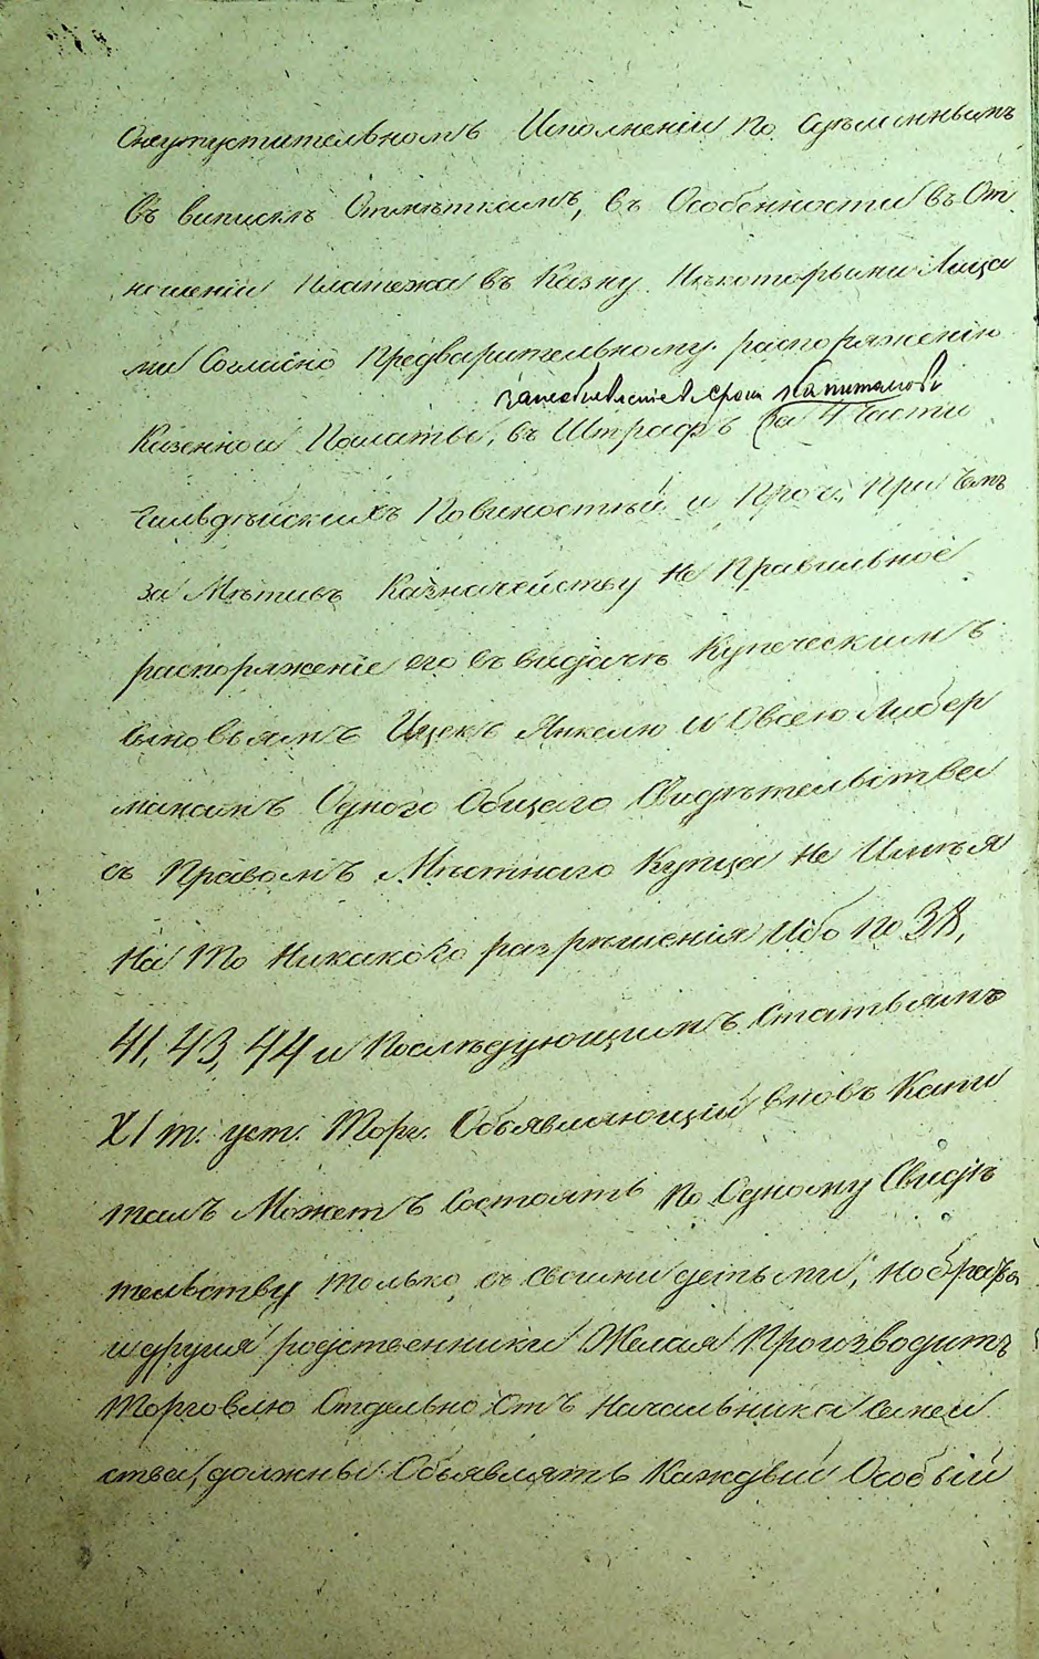 Онеупустительномъ Исполненіи по Сдѣланнымъ
въ випискѣ Отмѣткамъ, въ Особенности въ От
ношеніи Платежа въ Казну Нѣкоторыми Лица
ми Согласно Предварительному распоряженію
капиталовъ
Казенной Палаты, въ Штрафъ за 4 Части
Гильдѣйскихъ Повиностѣй и Проч. При Чемъ
за Мѣтивъ Казначейству Не Правильное
распоряженіе его въ видачѣ Купеческимъ
Сыновьямъ Ицекѣ Янкелю и Овсею Либер
манамъ Одного Общаго Свидѣтельства
съ Правомъ Мѣстнаго Купца Не Имѣя
На То Никакого разрѣшенія Ибо по 38,
41, 43, 44 и Послѣдующимъ Статьямъ
XI т. уст. Торг. Объявляющій вновь Капи
талъ Можетъ Состоять по Одному Свидѣ
тельству только съ Своими детьми, но братья
и другія родственники Желая Производить
Торговлю Отдельно Отъ Начальника Семей
ства, должны Объявлять Каждый Особый